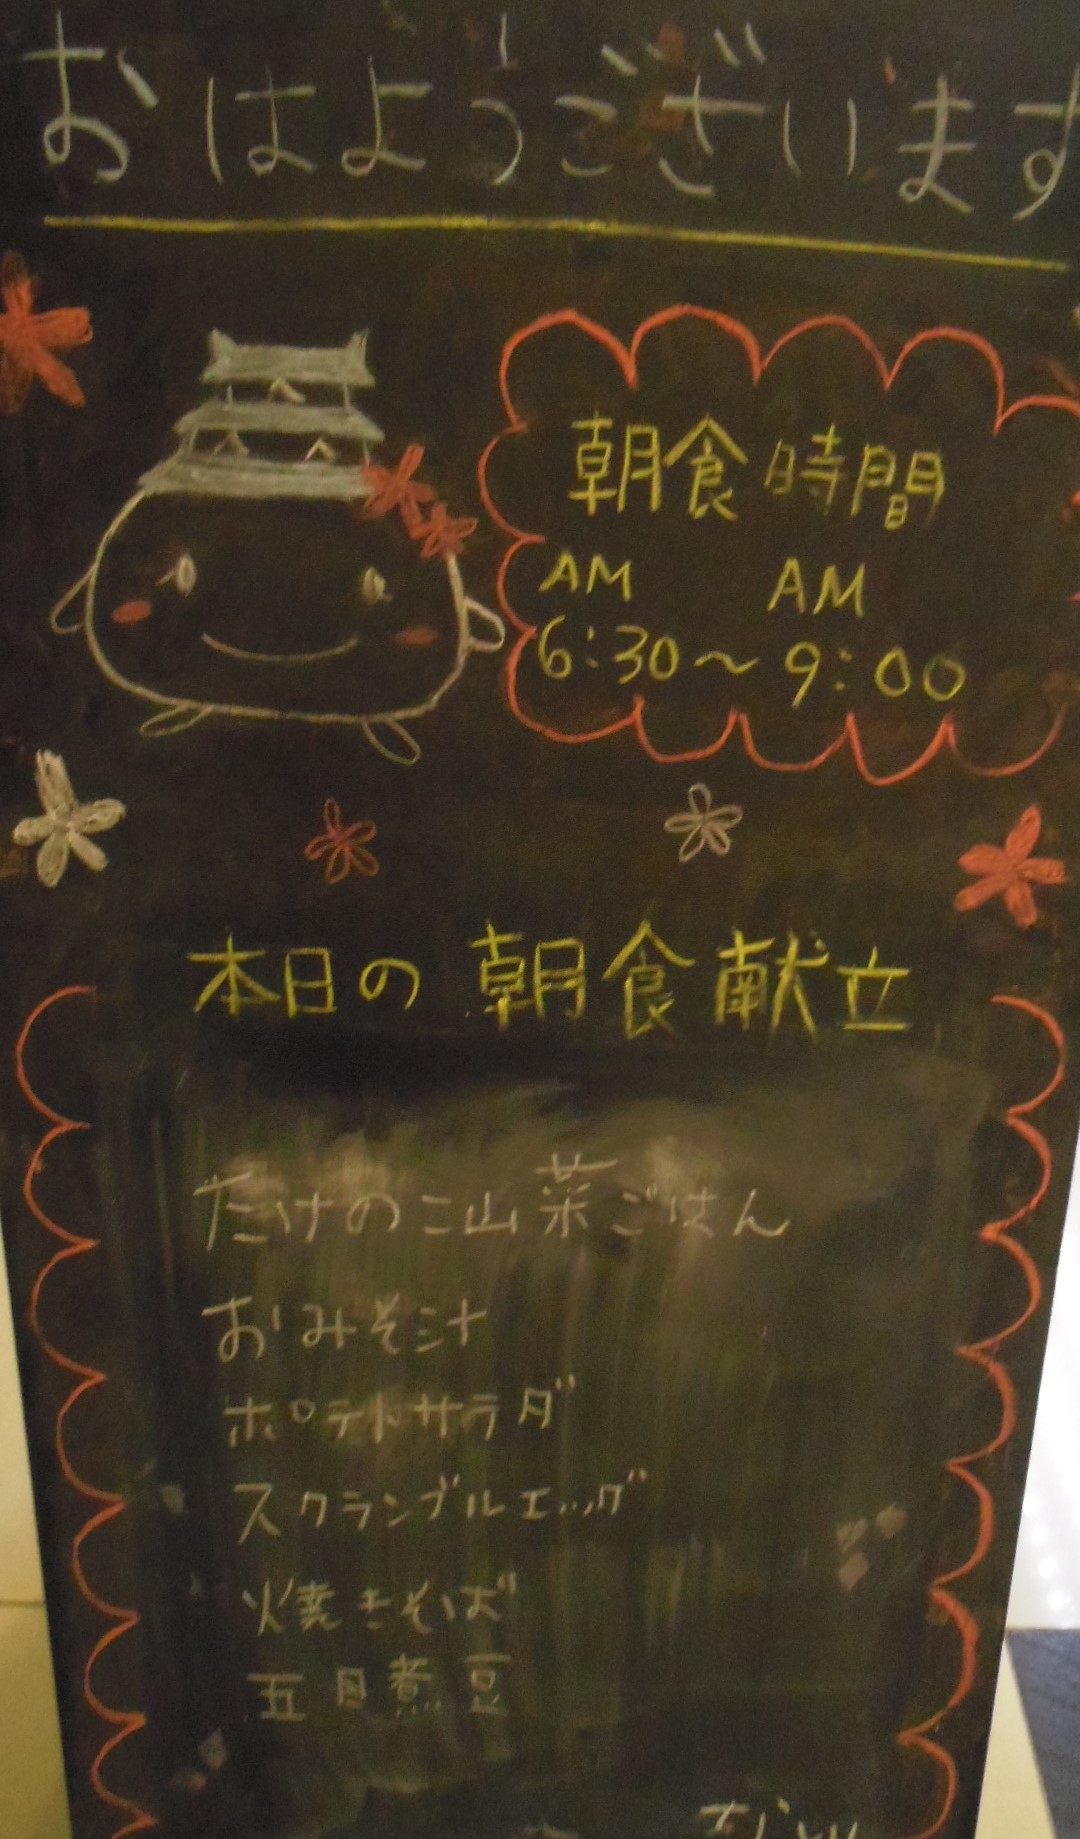 おはようございます
朝食時間
AM AM
6:30～9:00
本日の朝食献立
たけのこ山菜ごはん
おみそ汁
ポテトサラダ
スクランブルエッグ
焼きそば
五目煮豆